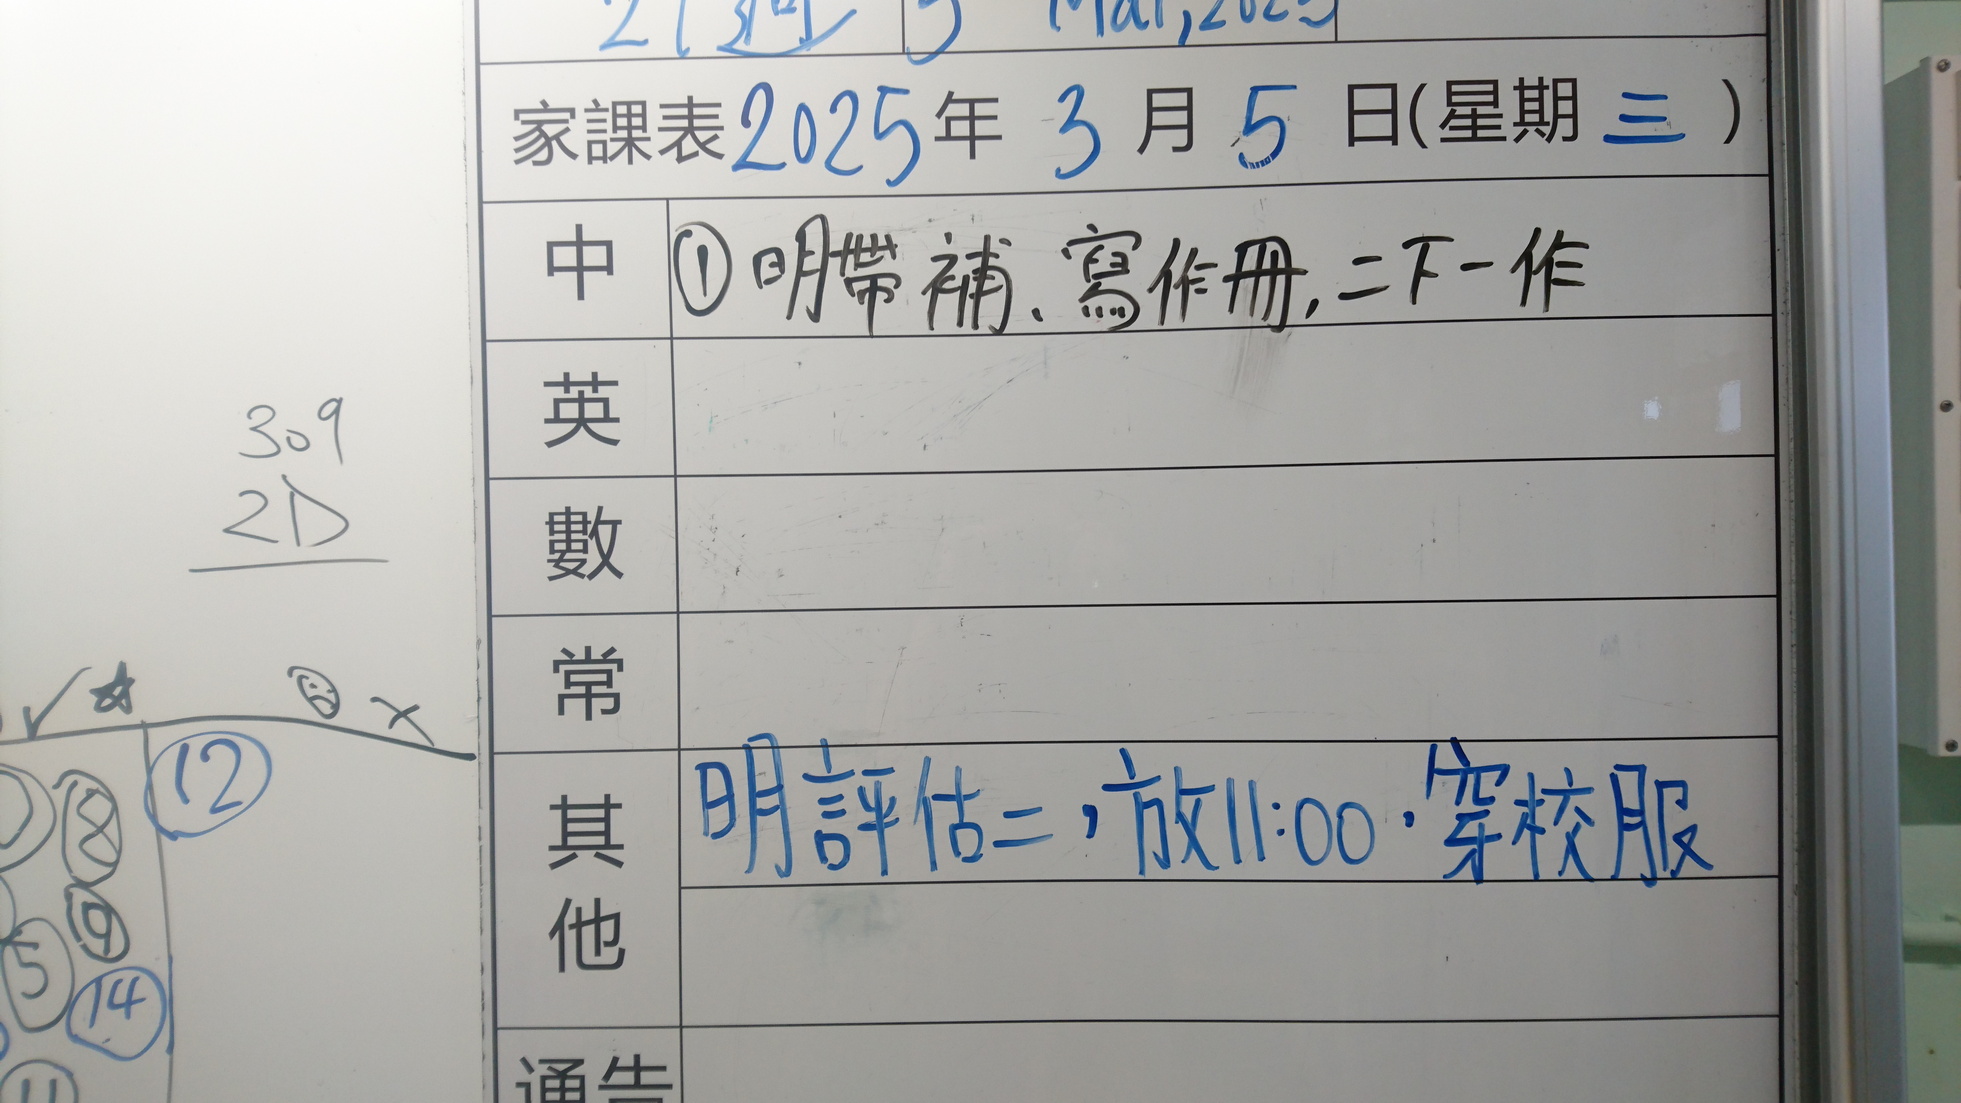 21週 5 Mar,2025
家課表2025年 3 月 5 日(星期三)
中 ①明帶補、寫作冊,二下一作
英
數
常
其他 明評估二,放11:00.穿校服
通告
309
2D
12
8
9
5
14
11